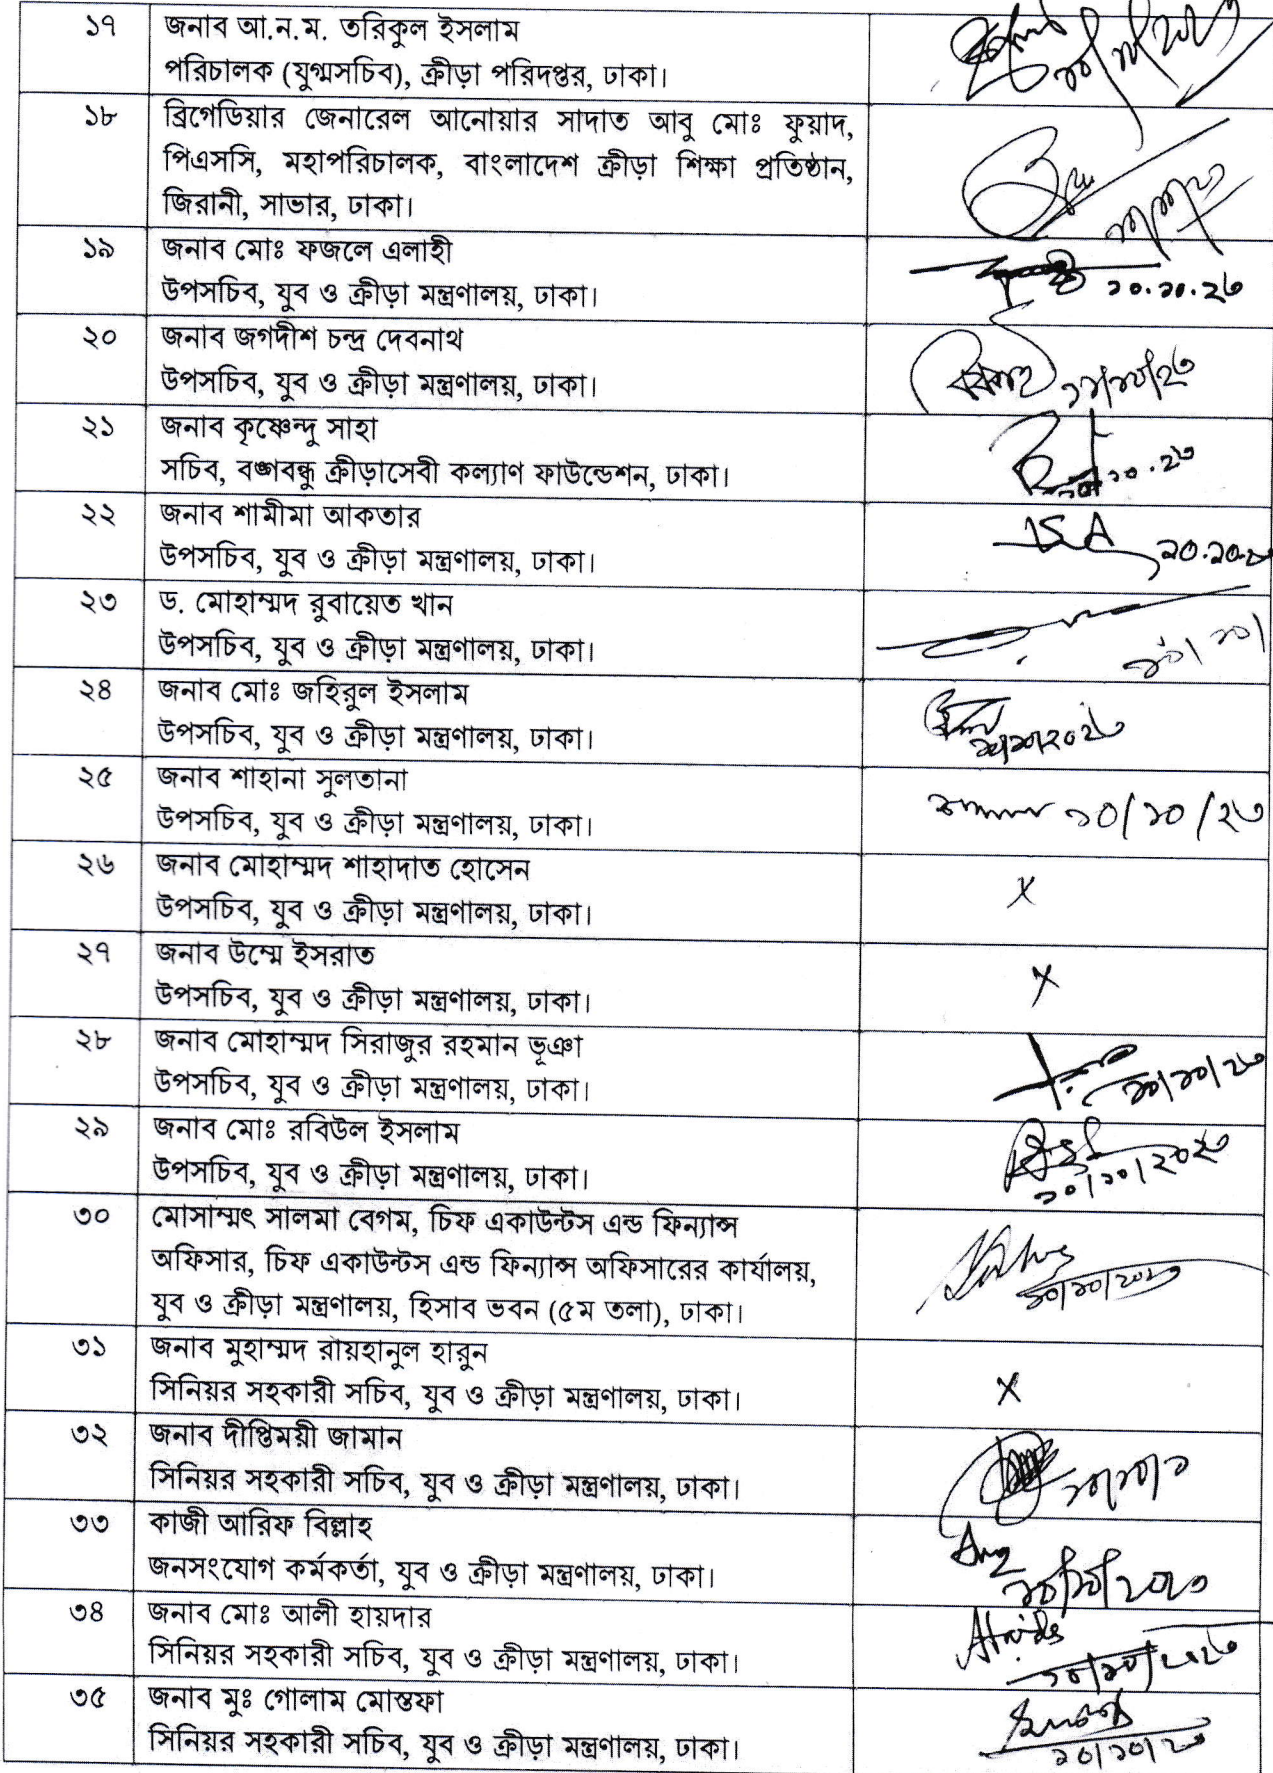 ১৭
জনাব আ.ন.ম. তরিকুল ইসলাম
পরিচালক (যুগ্মসচিব), ক্রীড়া পরিদপ্তর, ঢাকা।
১৮
ব্রিগেডিয়ার জেনারেল আনোয়ার সাদাত আবু মোঃ ফুয়াদ,
পিএসসি, মহাপরিচালক, বাংলাদেশ ক্রীড়া শিক্ষা প্রতিষ্ঠান,
জিরানী, সাভার, ঢাকা।
১৯
জনাব মোঃ ফজলে এলাহী
উপসচিব, যুব ও ক্রীড়া মন্ত্রণালয়, ঢাকা।
১০.১০.২৩
২০
জনাব জগদীশ চন্দ্র দেবনাথ
উপসচিব, যুব ও ক্রীড়া মন্ত্রণালয়, ঢাকা।
২১
জনাব কৃষ্ণেন্দু সাহা
সচিব, বঙ্গবন্ধু ক্রীড়াসেবী কল্যাণ ফাউন্ডেশন, ঢাকা।
২২
জনাব শামীমা আকতার
উপসচিব, যুব ও ক্রীড়া মন্ত্রণালয়, ঢাকা।
২৩
ড. মোহাম্মদ রুবায়েত খান
উপসচিব, যুব ও ক্রীড়া মন্ত্রণালয়, ঢাকা।
২৪
জনাব মোঃ জহিরুল ইসলাম
উপসচিব, যুব ও ক্রীড়া মন্ত্রণালয়, ঢাকা।
২৫
জনাব শাহানা সুলতানা
উপসচিব, যুব ও ক্রীড়া মন্ত্রণালয়, ঢাকা।
১০/১০/২৩
২৬
জনাব মোহাম্মদ শাহাদাত হোসেন
উপসচিব, যুব ও ক্রীড়া মন্ত্রণালয়, ঢাকা।
x
২৭
জনাব উম্মে ইসরাত
উপসচিব, যুব ও ক্রীড়া মন্ত্রণালয়, ঢাকা।
x
২৮
জনাব মোহাম্মদ সিরাজুর রহমান ভূঞা
উপসচিব, যুব ও ক্রীড়া মন্ত্রণালয়, ঢাকা।
১০/১০/২৩
২৯
জনাব মোঃ রবিউল ইসলাম
উপসচিব, যুব ও ক্রীড়া মন্ত্রণালয়, ঢাকা।
১০/১০/২০২৩
৩০
মোসাম্মৎ সালমা বেগম, চিফ একাউন্টস এন্ড ফিন্যান্স
অফিসার, চিফ একাউন্টস এন্ড ফিন্যান্স অফিসারের কার্যালয়,
যুব ও ক্রীড়া মন্ত্রণালয়, হিসাব ভবন (৫ম তলা), ঢাকা।
১০/১০/২০২৩
৩১
জনাব মুহাম্মদ রায়হানুল হারুন
সিনিয়র সহকারী সচিব, যুব ও ক্রীড়া মন্ত্রণালয়, ঢাকা।
x
৩২
জনাব দীপ্তিময়ী জামান
সিনিয়র সহকারী সচিব, যুব ও ক্রীড়া মন্ত্রণালয়, ঢাকা।
৩৩
কাজী আরিফ বিল্লাহ
জনসংযোগ কর্মকর্তা, যুব ও ক্রীড়া মন্ত্রণালয়, ঢাকা।
১০/১০/২০২৩
৩৪
জনাব মোঃ আলী হায়দার
সিনিয়র সহকারী সচিব, যুব ও ক্রীড়া মন্ত্রণালয়, ঢাকা।
১০/১০/২০২৩
৩৫
জনাব মুঃ গোলাম মোস্তফা
সিনিয়র সহকারী সচিব, যুব ও ক্রীড়া মন্ত্রণালয়, ঢাকা।
১০/১০/২৩